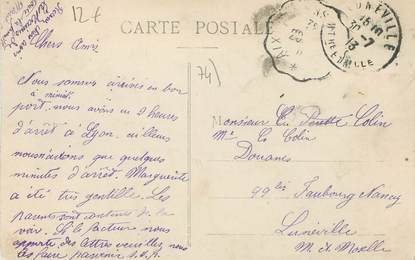 12 €
CARTE POSTALE
74)
Chers Amis
Nous sommes arrivés en bon
port à minuit, nous avons eu 2 heures
d'arrêt à Lyon, ailleurs
nous n'avions que quelques
minutes d'arrêt. Marguerite
a été très gentille. Les
parents sont contents de la
voir. Si le facteur nous
apporte des lettres veuillez nous
les faire parvenir S.V.P.
Monsieur Colin
Mr Colin
Douanes
99bis Faubourg Nancy
Lunéville
M. et Moselle
LUNEVILLE
15
7
13
MEURTHE-ET-MOSELLE
AIX